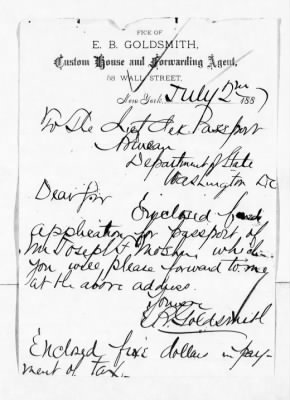 FICE OF
E. B. GOLDSMITH,
Custom House and Forwarding Agent,
58 WALL STREET,
New York, July 2nd 1887
To The Passport
Bureau
Department of State
Washington DC
Dear Sir
Enclosed find
application for passport of
Mr Joseph which
you will please forward to me
at the above address.
Yours
E. B. Goldsmith
Enclosed five dollars in pay-
ment of tax.-